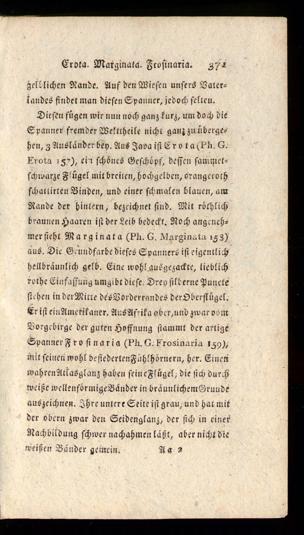 Erota. Marginata. Frosinaria. 371
gelblichen Rande. Auf den Wiesen unsers Vater-
landes findet man diesen Spanner, jedoch selten.
Diesen fügen wir nun noch ganz kurz, um doch die
Spanner fremder Welttheile nicht ganz zu überge-
hen, 3 Ausländer bey. Aus Java ist Erota (Ph. G.
Erota 157), ein schönes Geschöpf, dessen sammet-
schwarze Flügel mit breiten, hochgelben, orangeroth
schattirten Binden, und einer schmalen blauen, am
Rande der hintern, bezeichnet sind. Mit röthlich
braunen Haaren ist der Leib bedeckt. Noch angeneh-
mer sieht Marginata (Ph. G. Marginata 158)
aus. Die Grundfarbe dieses Spanners ist eigentlich
hellbräunlich gelb. Eine wohl ausgezackte, lieblich
rothe Einfassung umgibt diese. Drey silberne Puncte
stehen in der Mitte des Vorderrandes der Oberflügel.
Er ist ein Amerikaner. Aus Afrika aber, und zwar vom
Vorgebirge der guten Hoffnung stammt der artige
Spanner Frosinaria (Ph. G. Frosinaria 159),
mit seinen wohl befiederten Fühlhörnern, her. Einen
wahren Atlasglanz haben seine Flügel, die sich durch
weiße wellenförmige Bänder in bräunlichem Grunde
auszeichnen. Ihre untere Seite ist grau, und hat mit
der obern zwar den Seidenglanz, der sich in einer
Nachbildung schwer nachahmen läßt, aber nicht die
weißen Bänder gemein. Aa 2